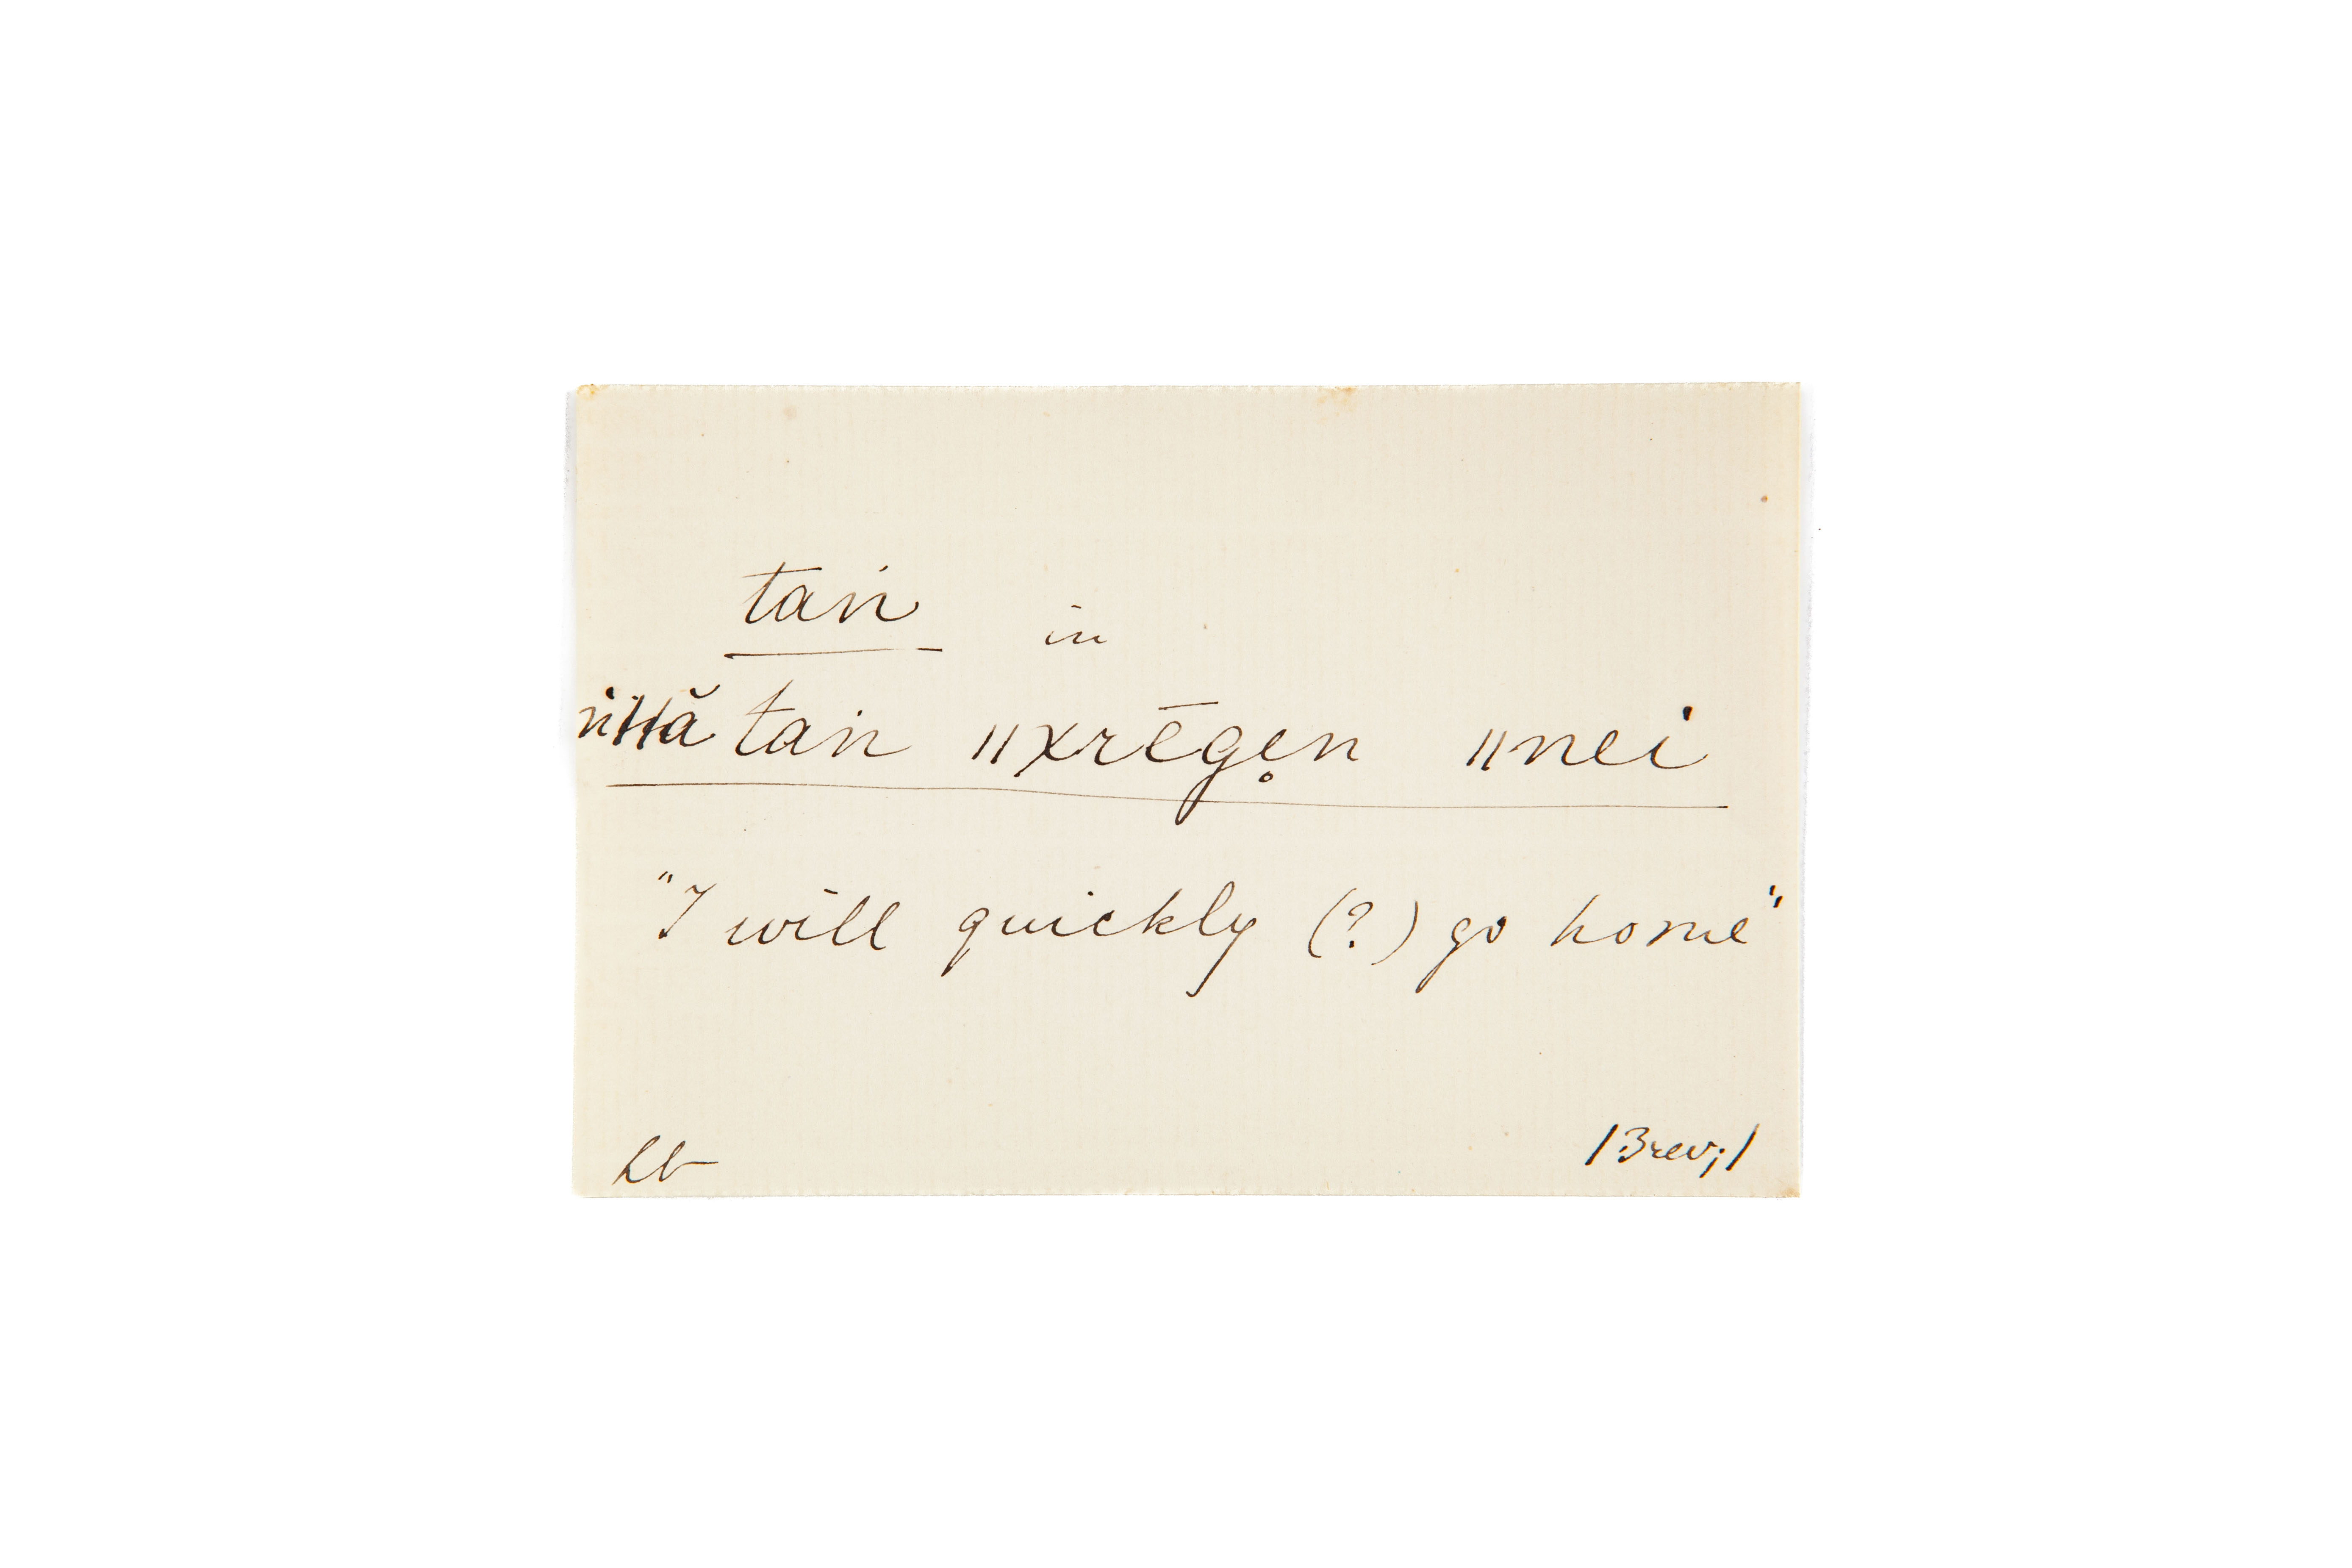 taṅ in
taṅ ǁxrēge̥n ǁnei
"I will quickly (?) go home"
/Brev;/